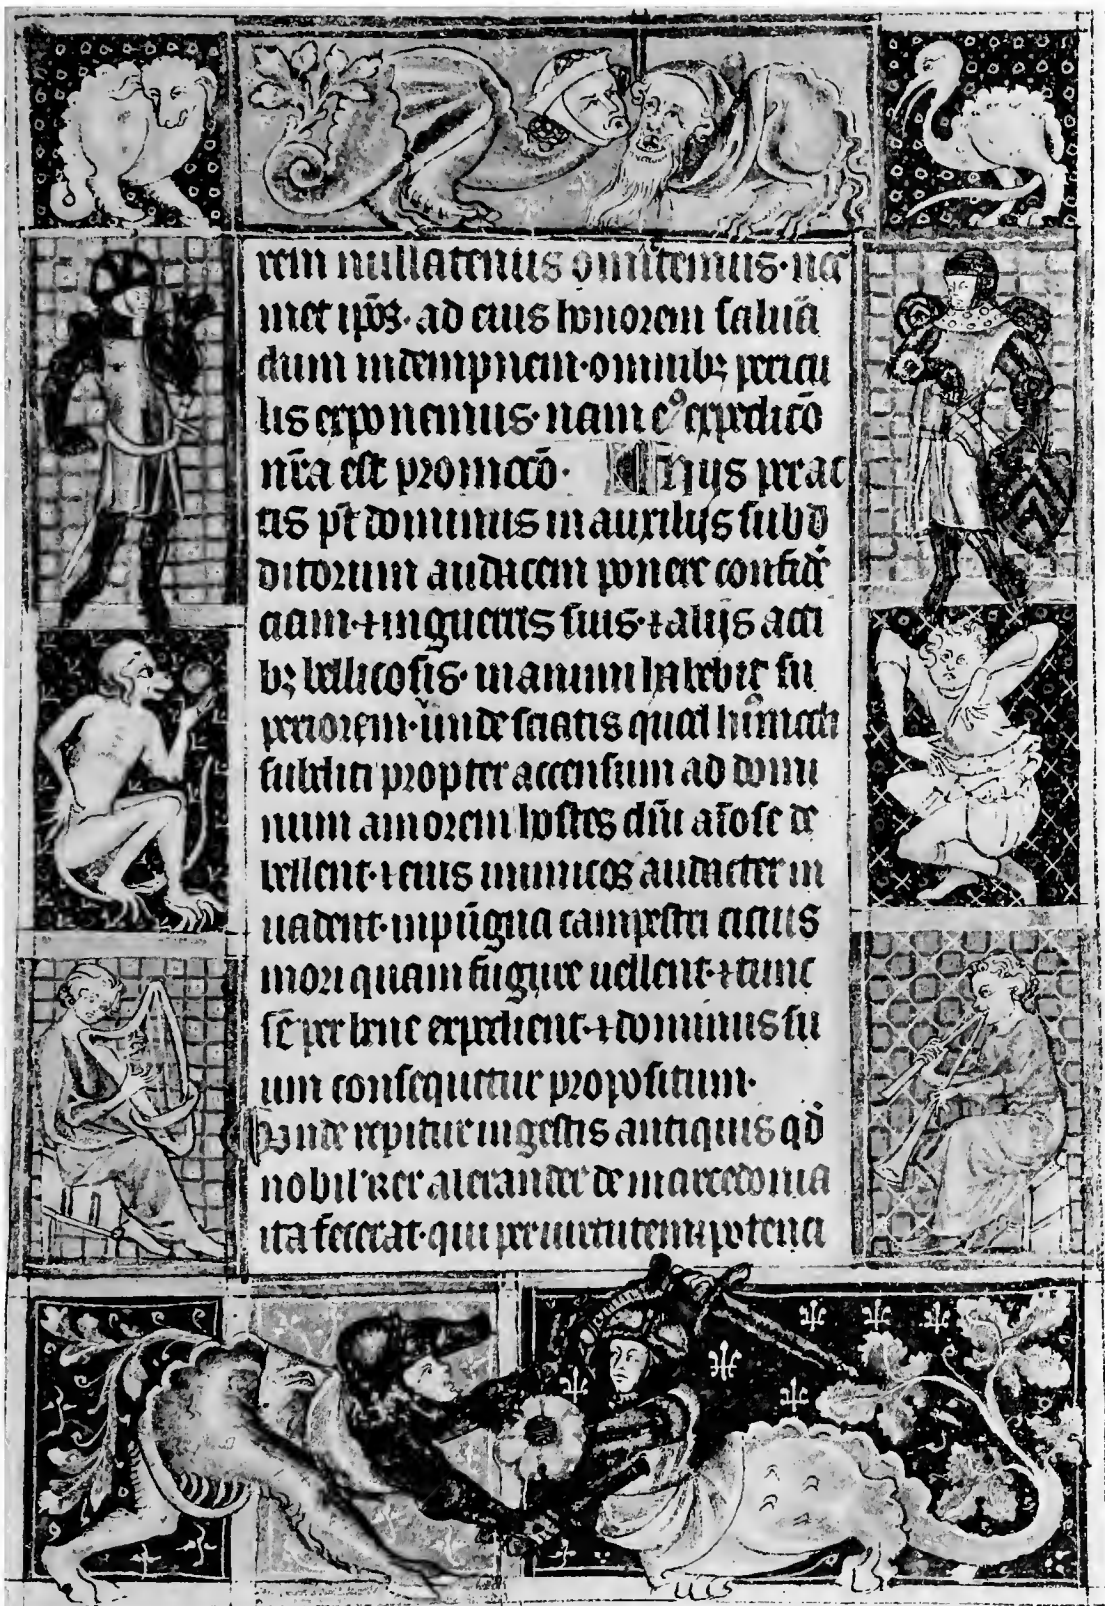 rem nullatenus omittemus· nec
met ip̄os· ad eius honorem saluā
dum indempnem· omnibꝫ pericu
lis exponemus· nam eꝰ expedicō
nr̄a est promocō· Hijs perac
tis pt̄ dominus in auxilijs subd
ditorum audacem ponere confidē
ciam· ⁊ in guerris suis· ⁊ alijs acti
bꝫ bellicosis· manum habebit su
periorem· ūnde sciatis quod
subditi propter accensum ad domi
num amorem hostes dn̄i aīose de
bellent· ⁊ eius inimicos audacter in
uadent· in pūgna campestri cicius
mori quam fugire uellent· ⁊ tunc
se per bene expedient· ⁊ dominus su
um consequetur propositum·
Unde rep̄itur in gestis antiquis qd̄
nobil' rex alexander de marcedonia
ita fecerat· qui per uirtutem ⁊ potenci